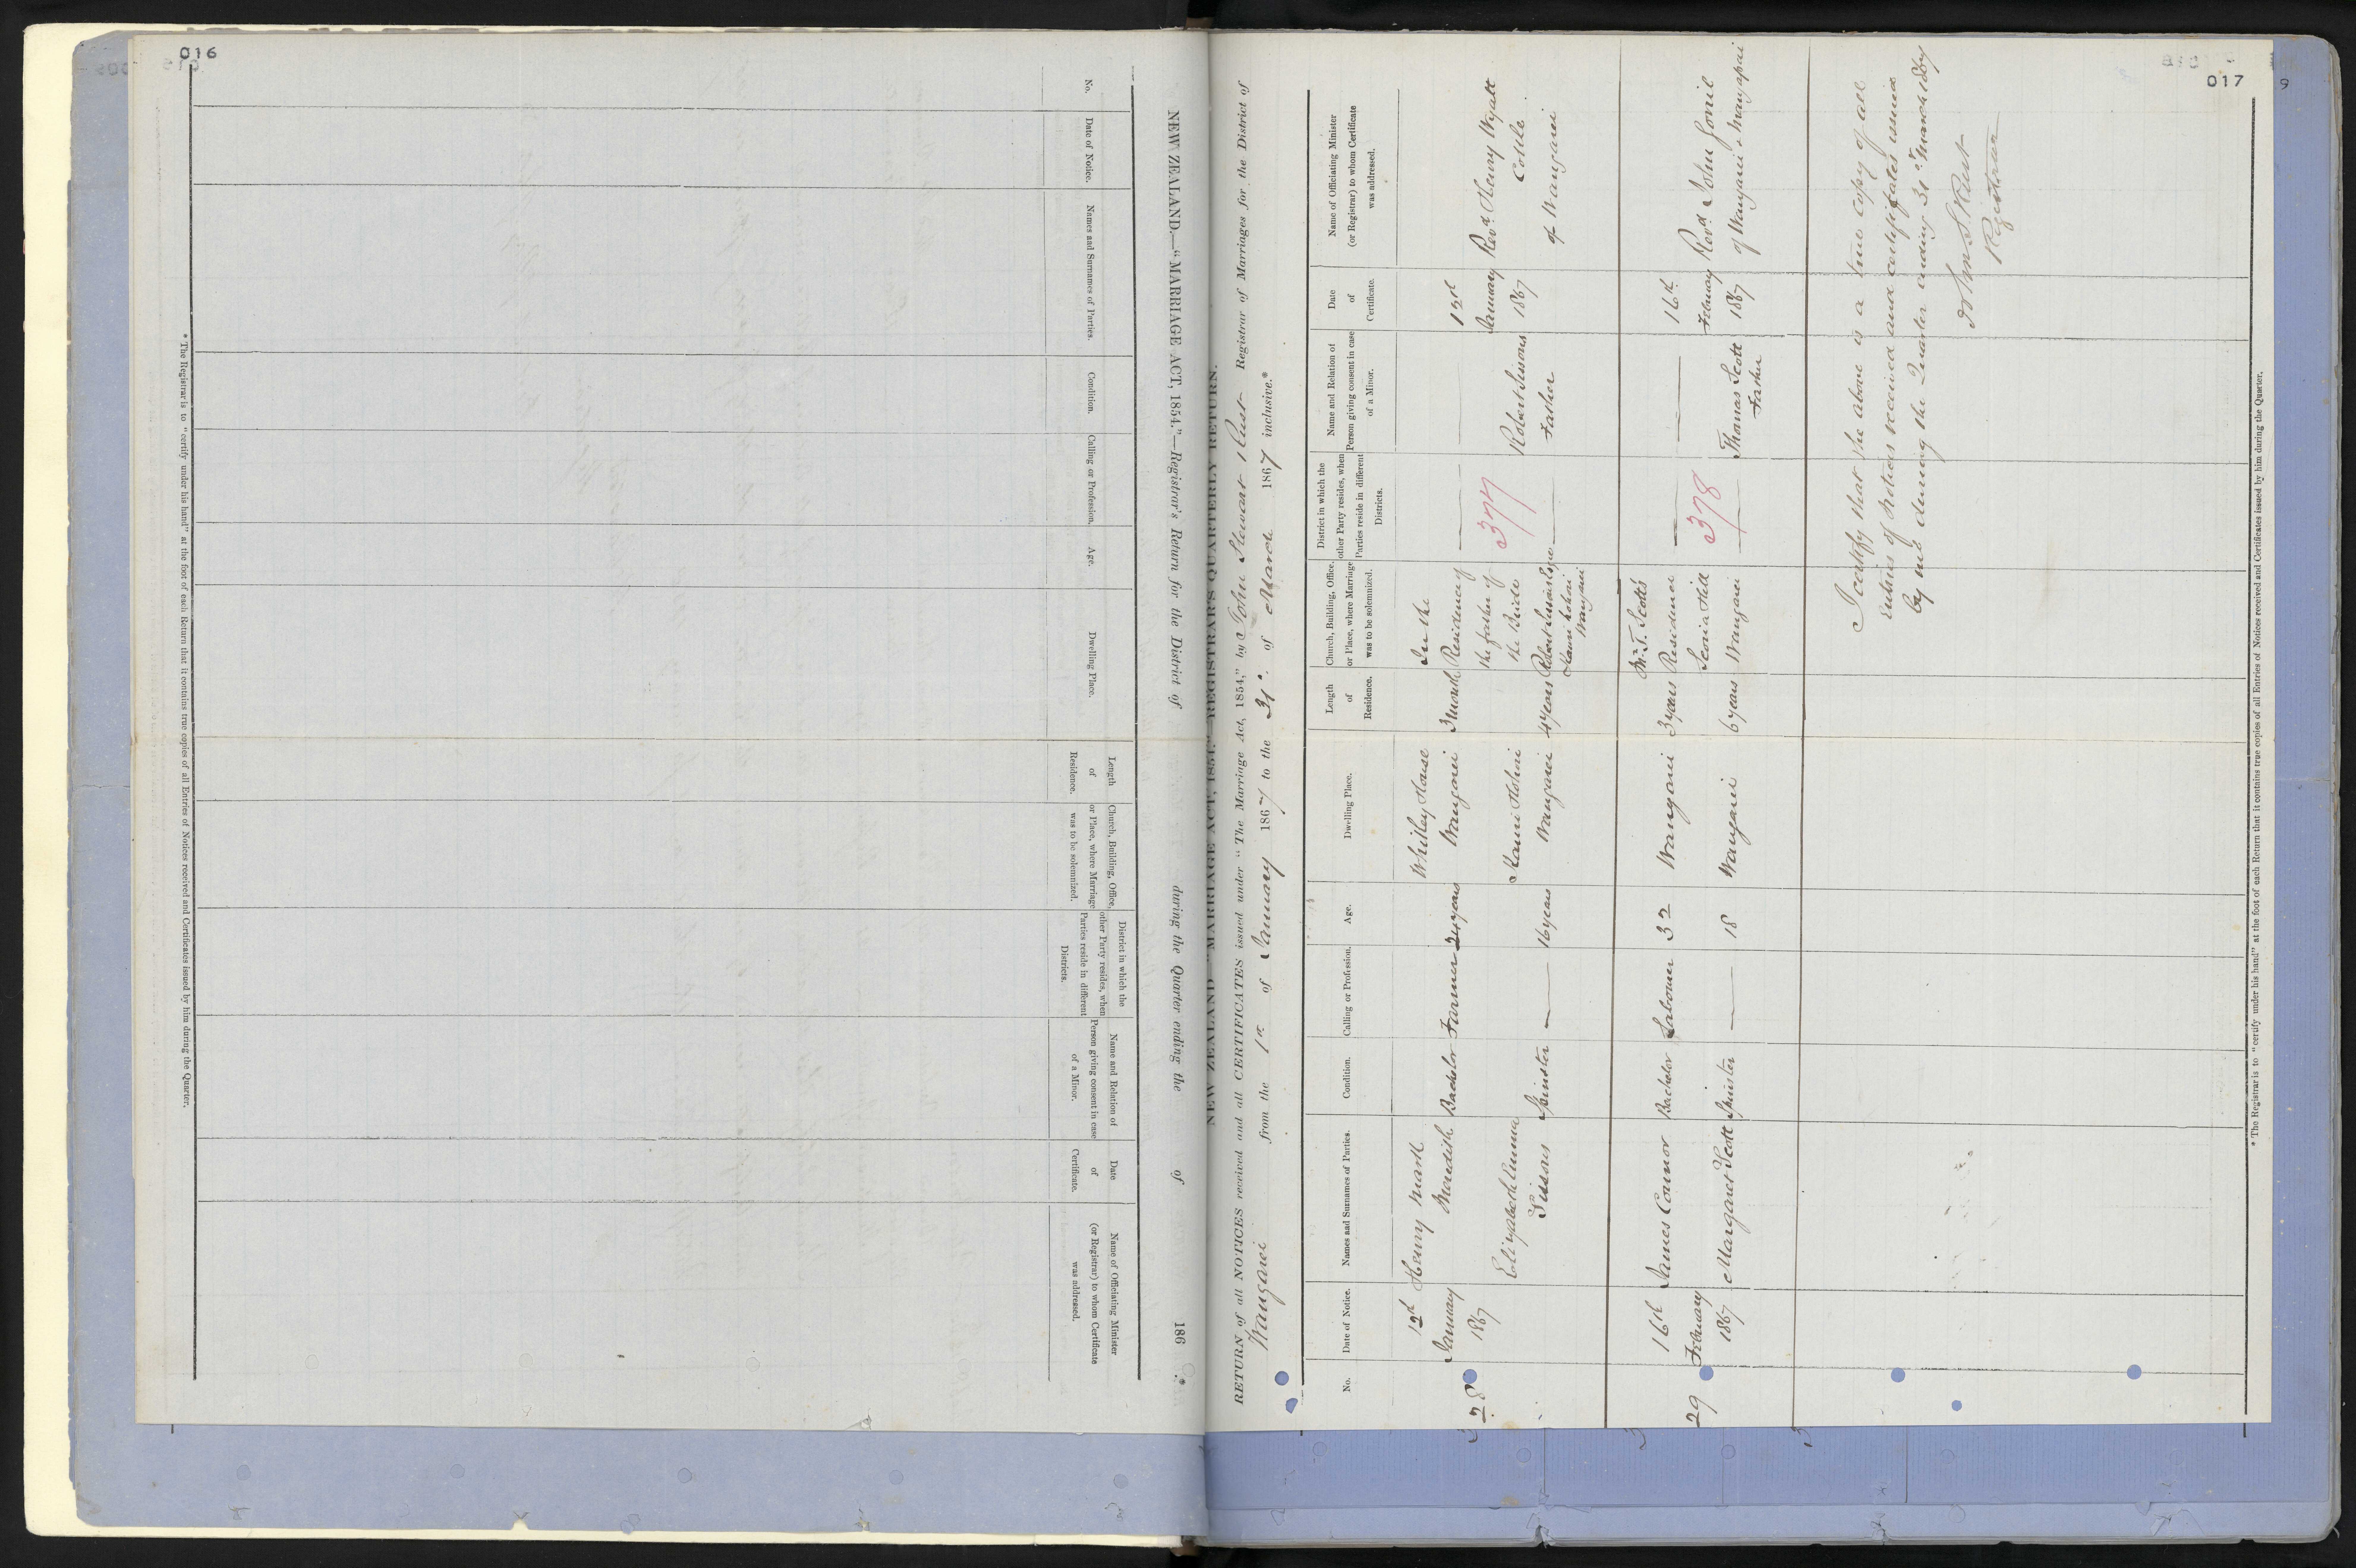 016
No.
Date of Notice.
Names and Surnames of Parties.
Condition.
Calling or Profession.
Age.
Dwelling Place.
Length
of
Residence.
Church, Building, Office,
or Place, where Marriage
was to be solemnized.
District in which the
other Party resides, when
Parties reside in different
Districts.
Name and Relation of
Person giving consent in case
of a Minor.
Date
of
Certificate.
Name of Officiating Minister
(or Registrar) to whom Certificate
was addressed.
NEW ZEALAND.—"MARRIAGE ACT, 1854."—Registrar's Return for the District of during the Quarter ending the of 186 .*
* The Registrar is to "certify under his hand" at the foot of each Return that it contains true copies of all Entries of Notices received and Certificates issued by him during the Quarter.
017
NEW ZEALAND.—"MARRIAGE ACT, 1854."—REGISTRAR'S QUARTERLY RETURN.
RETURN of all NOTICES received and all CERTIFICATES issued under "The Marriage Act, 1854," by John Stewart Rust Registrar of Marriages for the District of
Wangarei from the 1st of January 1867 to the 31st of March 1867 inclusive.*
No.
Date of Notice.
Names and Surnames of Parties.
Condition.
Calling or Profession.
Age.
Dwelling Place.
Length
of
Residence.
Church, Building, Office,
or Place, where Marriage
was to be solemnized.
District in which the
other Party resides, when
Parties reside in different
Districts.
Name and Relation of
Person giving consent in case
of a Minor.
Date
of
Certificate.
Name of Officiating Minister
(or Registrar) to whom Certificate
was addressed.
28
12th
January
1867
Henry Mark
Bachelor
Farmer
24 years
Whitley House
Wangarei
3 Month
In the
Residence of
the father of
the Bride
377
12th
January
1867
Revd Henry Wyatt
Collie
of Wangarei
Elizabeth Emma
Sissons
Spinster
16 years
Wangarei
4 years
Wangarei
Robert Sissons
Father
29
16th
February
1867
James Connor
Bachelor
Labourer
32
Wangarei
3 years
Mr. T. Scott's
Residence
Scoria Hill
Wangarei
378
16th
February
1867
Revd John Gorrie
of Wangarei & Mangapai
Margaret Scott
Spinster
18
Wangarei
6 years
Thomas Scott
Father
I certify that the above is a true copy of all
Entries of Notices received and certificates issued
by me during the Quarter ending 31st March 1867
John S Rust
Registrar
* The Registrar is to "certify under his hand" at the foot of each Return that it contains true copies of all Entries of Notices received and Certificates issued by him during the Quarter.